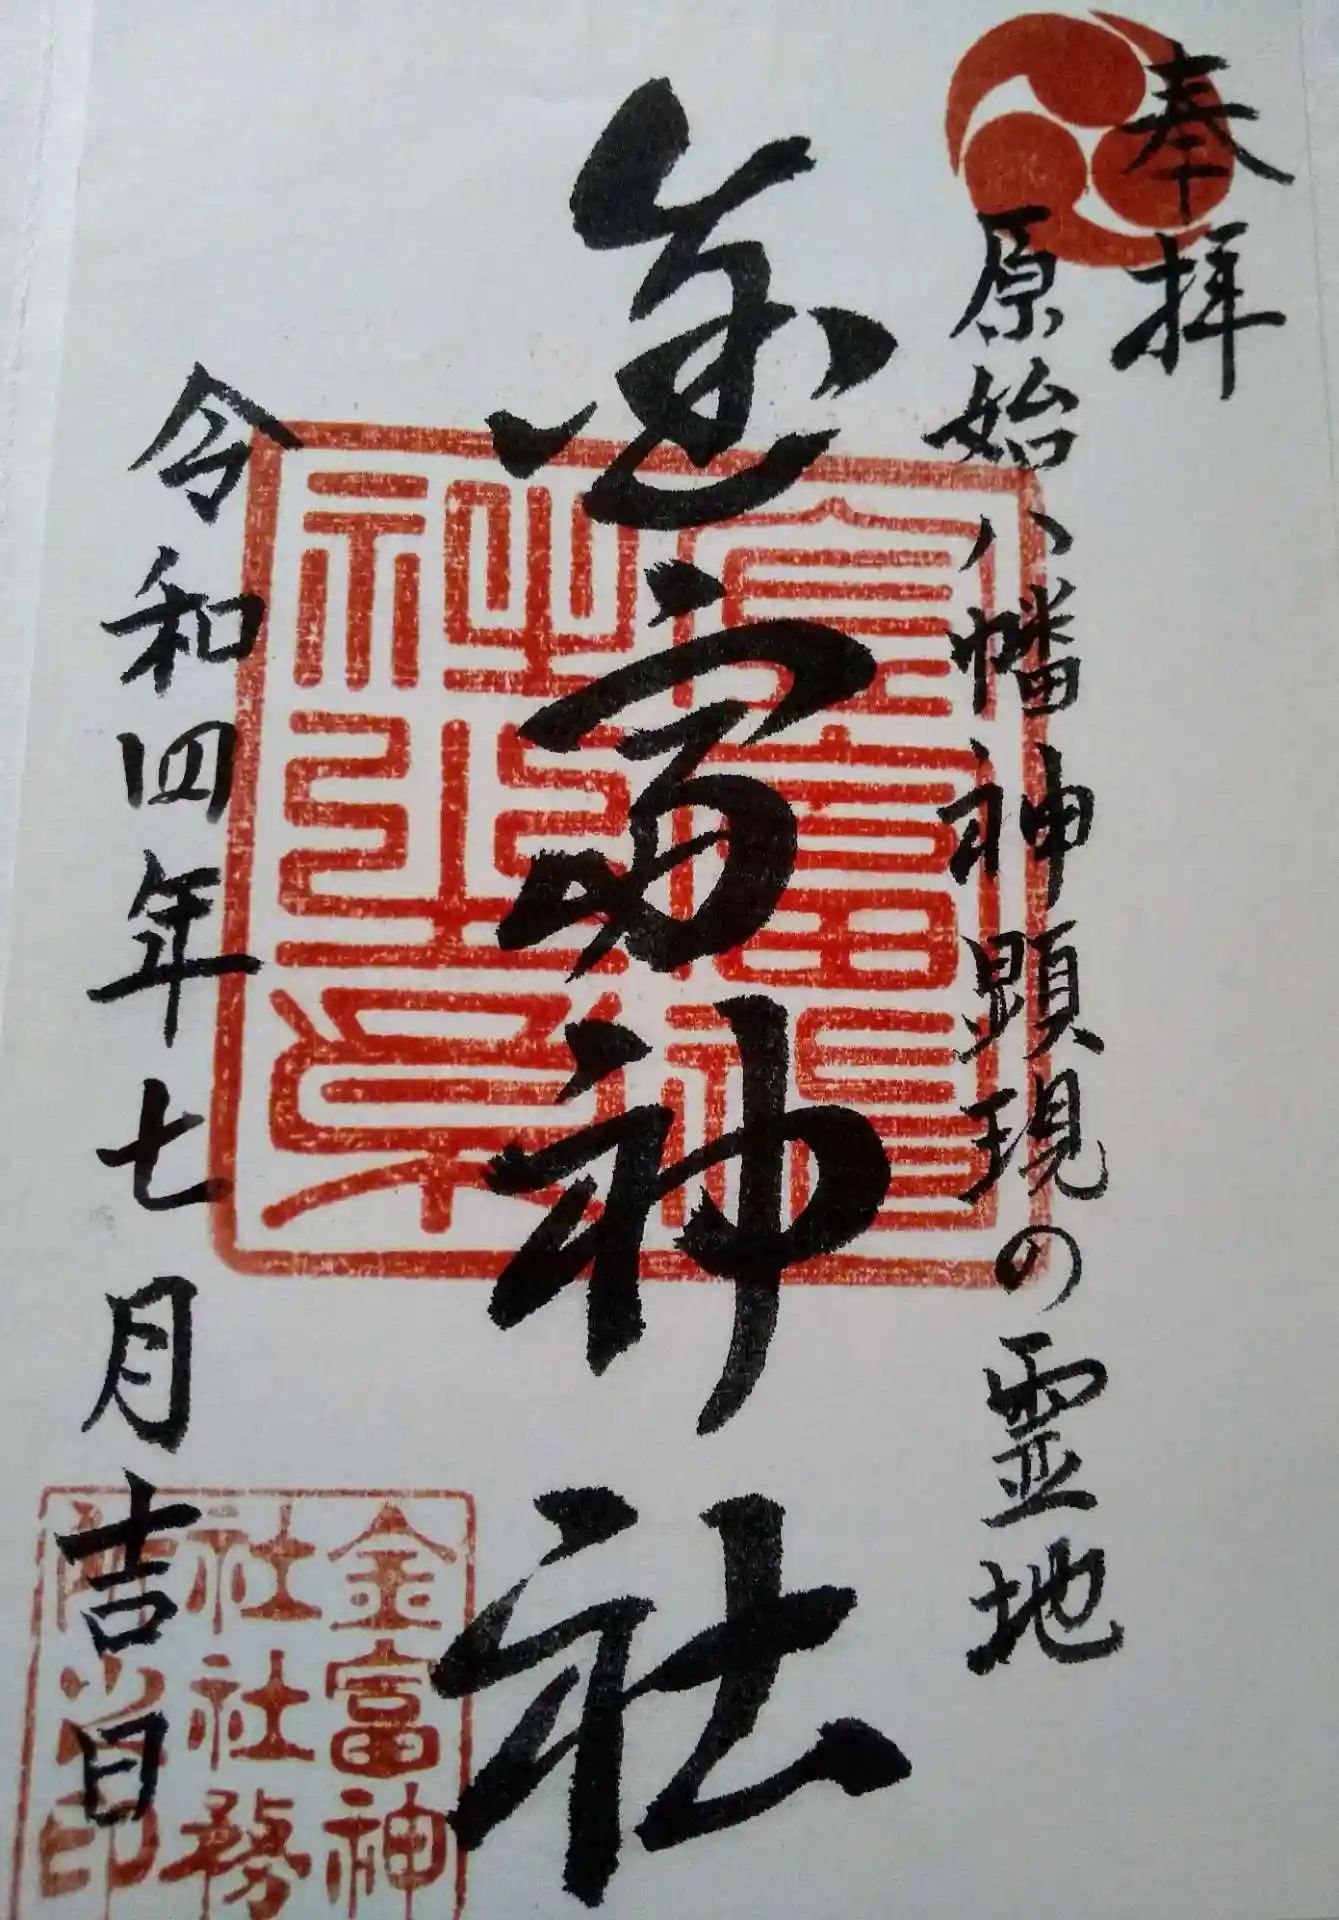 奉拝
原始八幡神顕現の霊地
金富神社
令和四年七月吉日
金富神
社之印
金富神
社社務
所之印